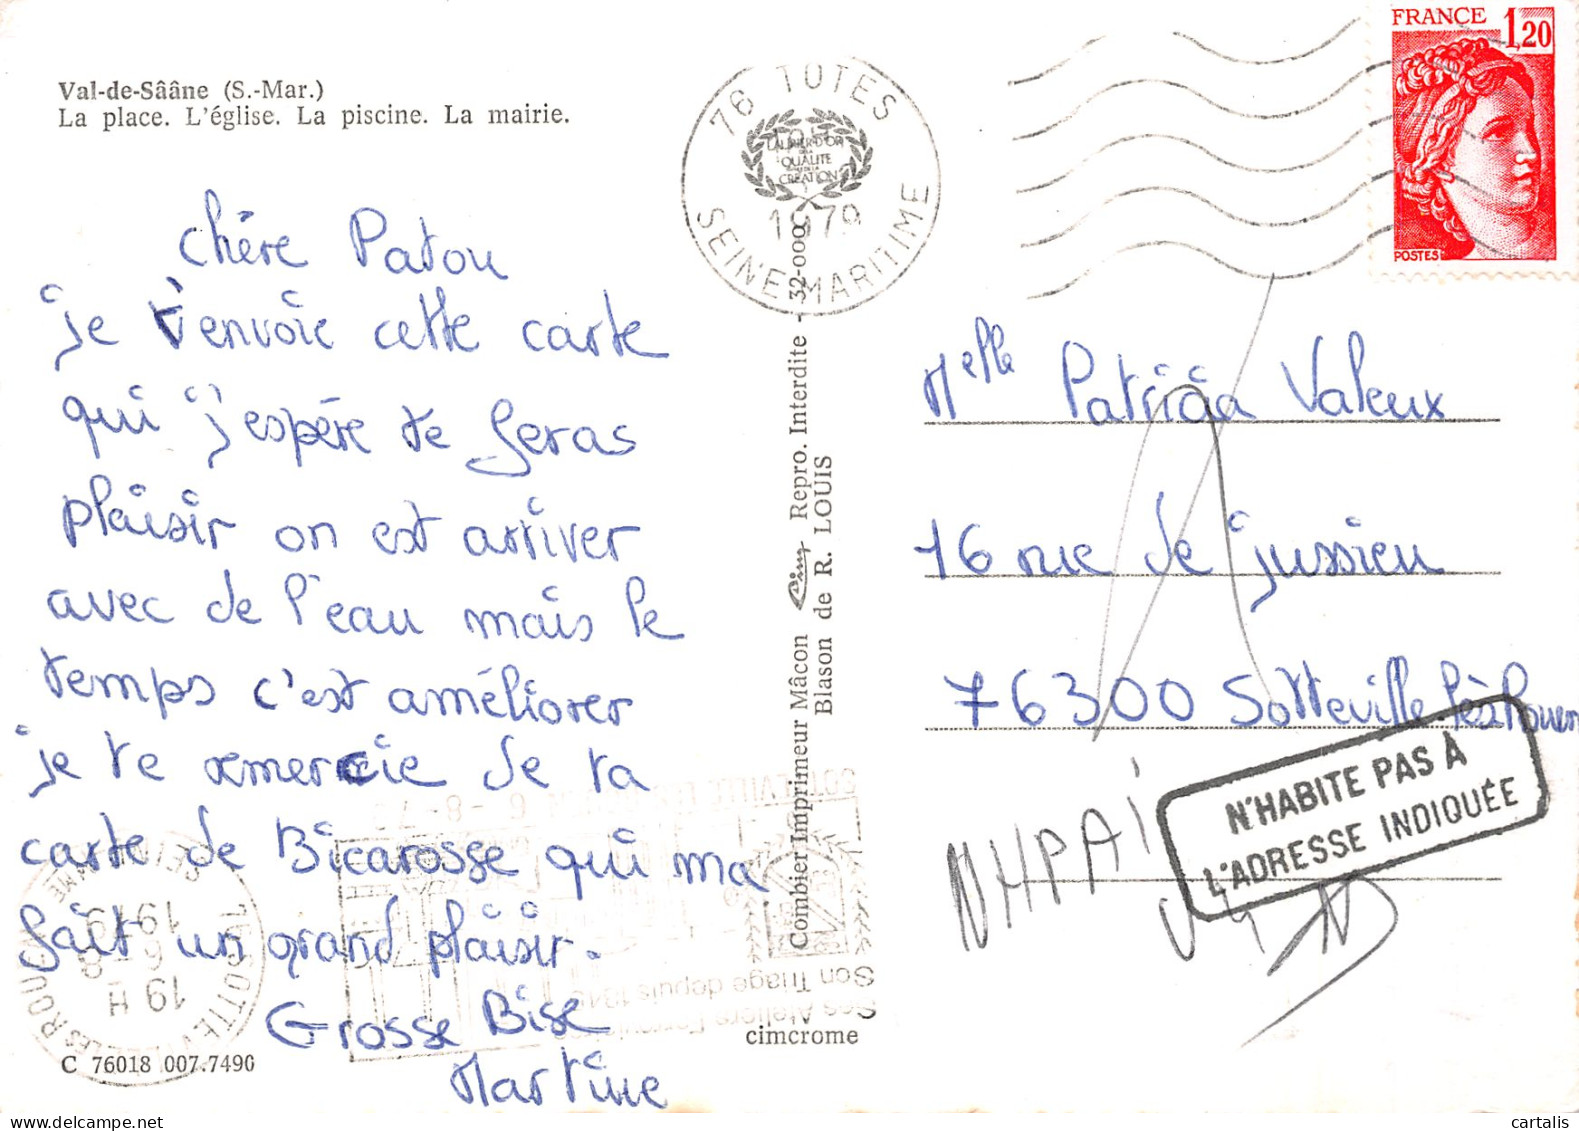 Val-de-Sâane (S.-Mar.)
La place. L'église. La piscine. La mairie.
76 TOTES
LAURIER D'OR
DE LA
QUALITE
DE LA
CREATION
1979
SEINE-MARITIME
FRANCE 1,20
POSTES
chère Patou
je t'envoie cette carte
qui j'espère te feras
plaisir on est arriver
avec de l'eau mais le
temps c'est améliorer
je te remercie de ta
carte de Bicarosse qui ma
fait un grand plaisir.
Grosse Bise
Martine
C 76018 007.7490
cimcrome
Combier Imprimeur Mâcon Cim Repro. Interdite - 32-000
Blason de R. LOUIS
Melle Patricia Valeux
16 rue de jussieu
76300 Sotteville lès Rouen
NHPAI
N'HABITE PAS À
L'ADRESSE INDIQUÉE
SOTTEVILLE LES ROUEN 6-8-79
Son Triage depuis
Ses Ateliers
76 SOTTEVILLE LES ROUEN
19 H
6-8
1979
SEINE MARITIME
cartalis